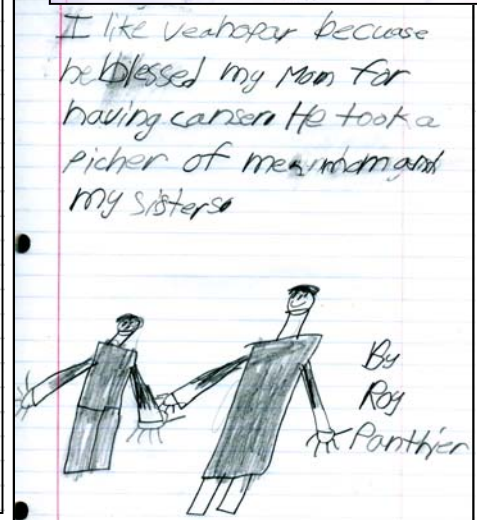 I like veahopar becuase
he blessed my Mom for
having cansen He took a
picher of me mom and
my sisters
By
Roy
Panthier